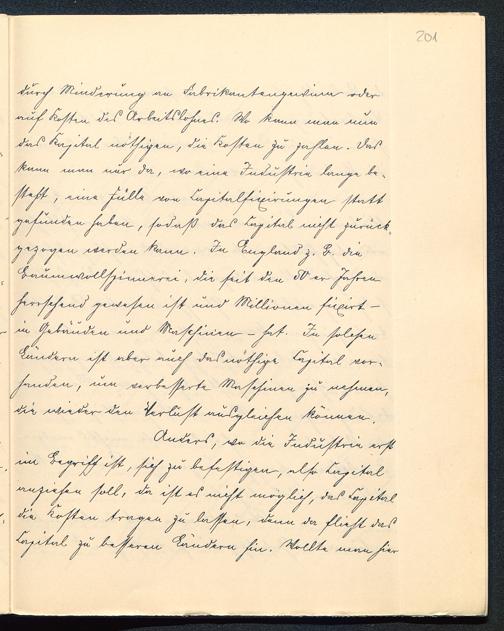 201
durch Minderung an Fabrikantengewinn oder
auf Kosten des Arbeitslohnes. Wo kann man nun
das Kapital nöthigen, die Kosten zu zahlen. Das
kann man nur da, wo eine Industrie lange be-
steht, eine Fülle von Capitalfixirungen statt
gefunden haben, sodaß das Capital nicht zurück-
gezogen werden kann. In England z. B. die
Baumwollspinnerei, die seit den 50er Jahren
herrschend gewesen ist und Millionen fixirt -
in Gebäuden und Maschinen - hat. In solchen
Ländern ist aber auch das nöthige Capital vor-
handen, um verbesserte Maschinen zu nehmen,
die wieder den Verlust ausgleichen können.
Anders, wo die Industrie erst
im Begriff ist, sich zu befestigen, also Capital
anziehen soll, da ist es nicht möglich, das Capital
die Kosten tragen zu lassen, denn da flieht das
Capital zu besseren Ländern hin. Wollte man hier